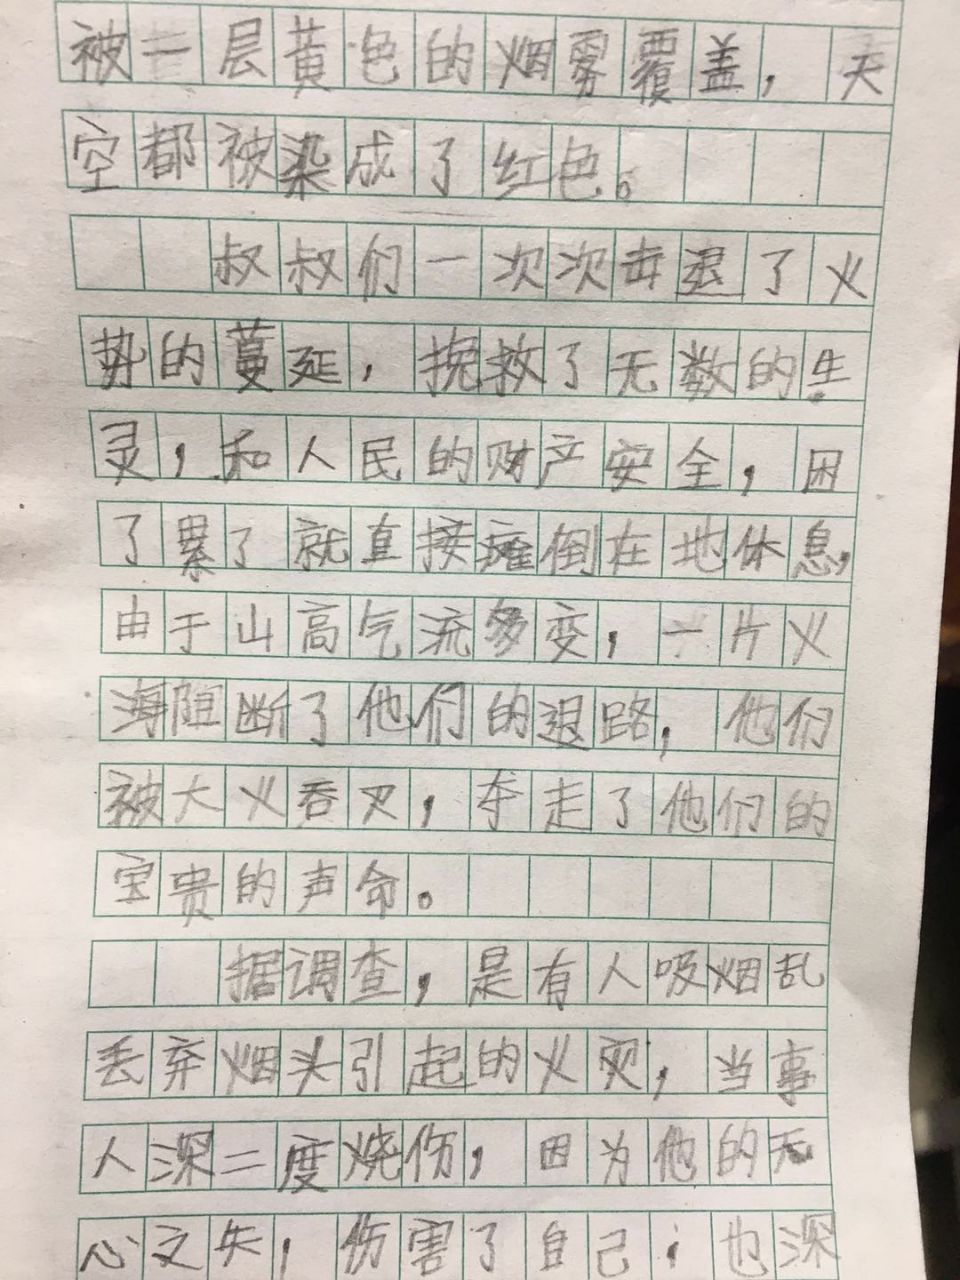 被一层黄色的烟雾覆盖，天
空都被染成了红色。
叔叔们一次次击退了火
势的蔓延，挽救了无数的生
灵，和人民的财产安全，困
了累了就直接瘫倒在地休息，
由于山高气流多变，一片火
海阻断了他们的退路，他们
被大火吞灭，夺走了他们的
宝贵的声命。
据调查，是有人吸烟乱
丢弃烟头引起的火灾，当事
人深二度烧伤，因为他的无
心之失，伤害了自己；也深